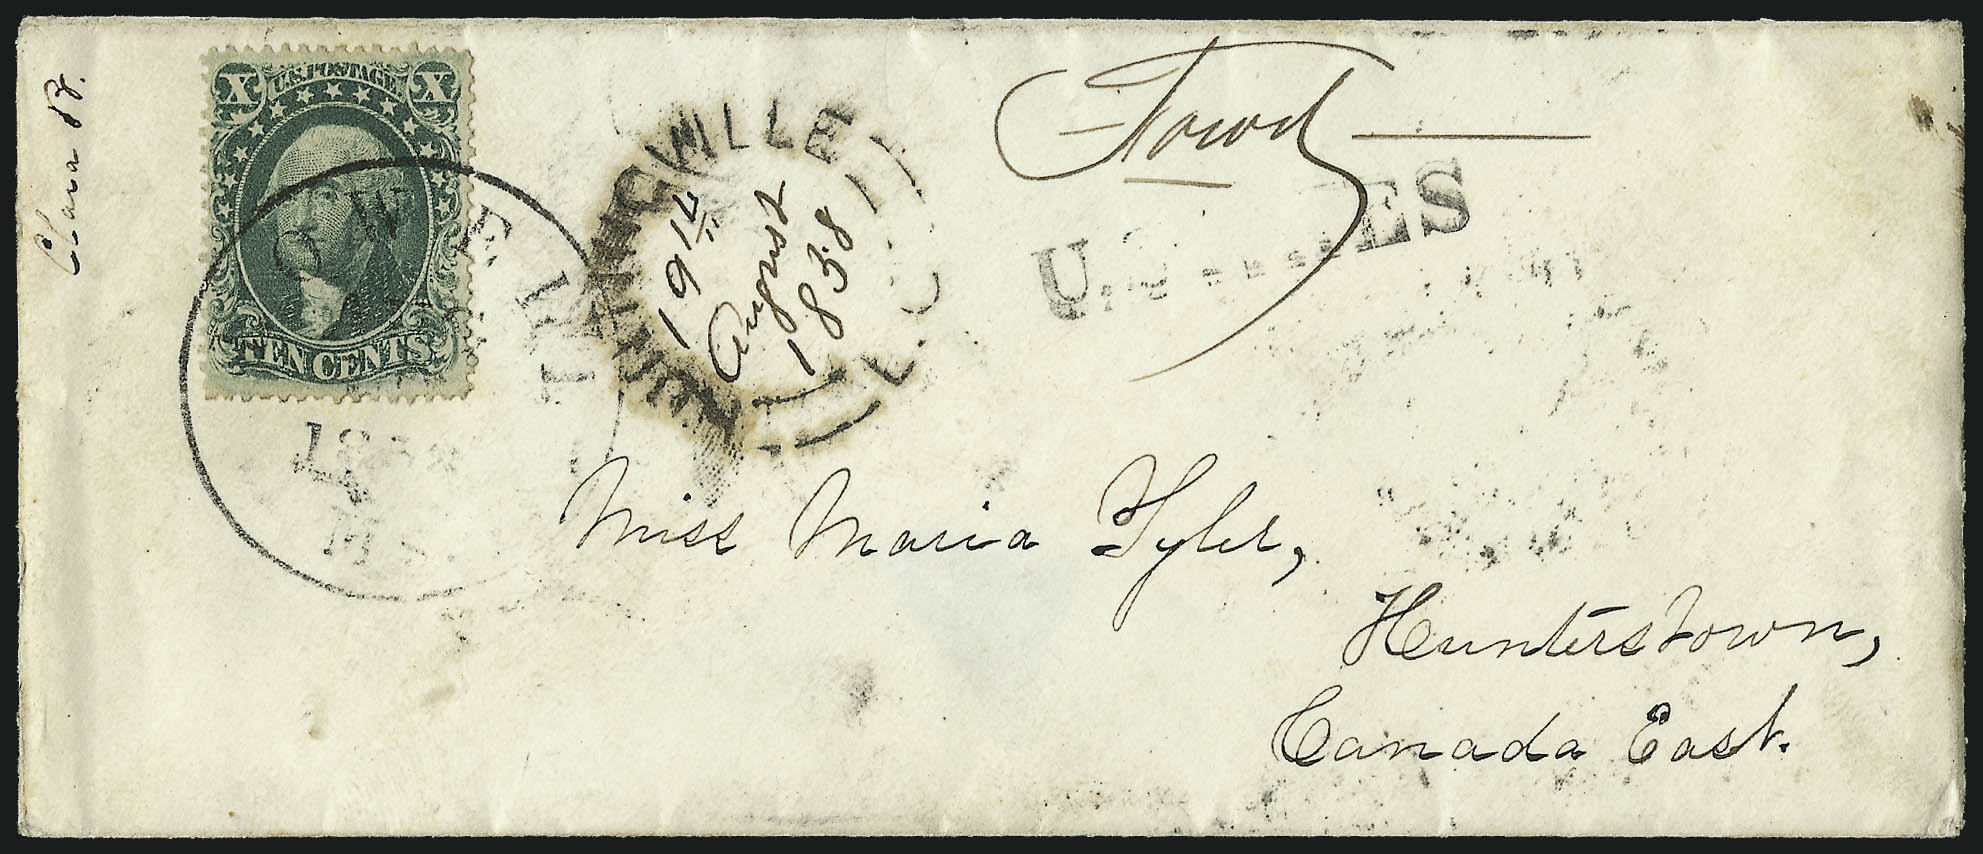 Clara B.
X U.S. POSTAGE X
TEN CENTS
LOWELL
1858
HUNTERVILLE
19th
August
1858
U. STATES
Miss Maria Tyler,
Hunterstown,
Canada East.